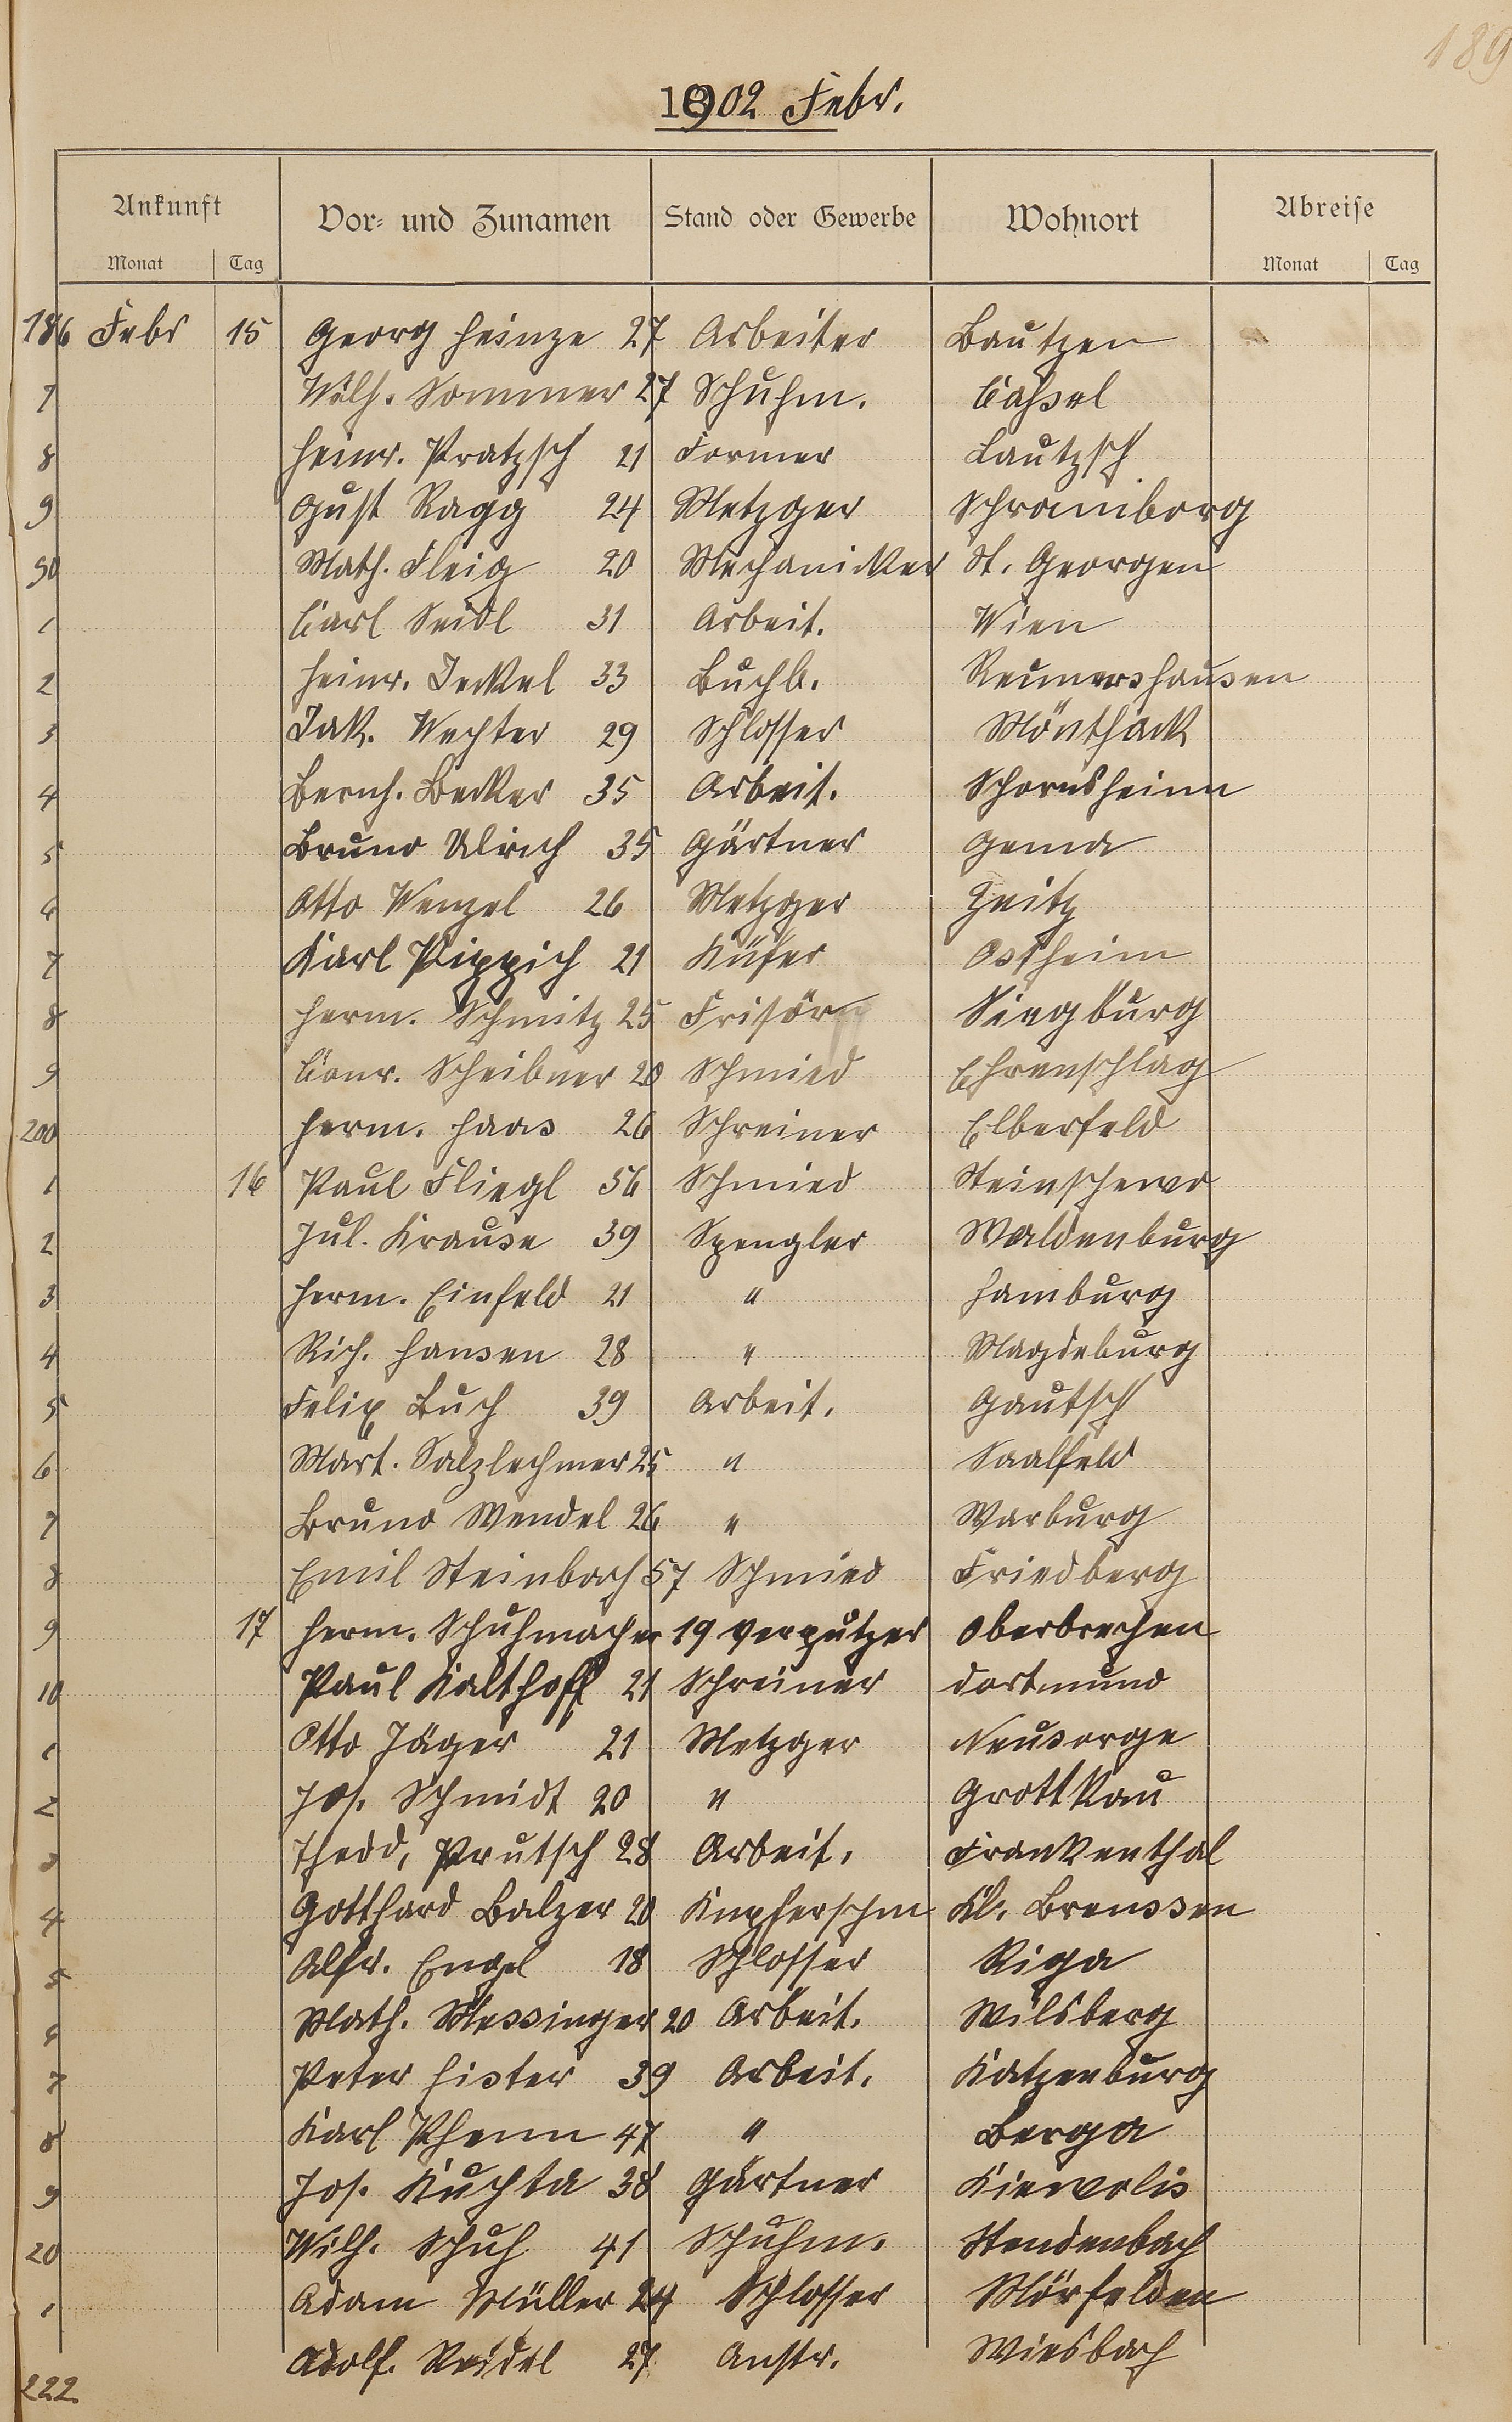 189
1902 Febr.
Ankunft Vor- und Zunamen Stand oder Gewerbe Wohnort Abreise
Monat Tag Monat Tag
186 Febr 15 Georg Heinze 27 Arbeiter Bautzen
7 Wilh. Sommer 27 Schuhm. Cassel
8 Heinr. Pratzsch 21 Former Lautzsch
9 Gust Ragg 24 Metzger Schramberg
90 Math. Fleig 20 Mechanicker St. Georgen
1 Carl Seidl 31 Arbeit. Wien
2 Heinr. Jeckel 33 Buchb. Reimershausen
3 Jak. Wechter 29 Schlosser
4 Bernh. Becker 35 Arbeit. Schornsheim
5 Bruno Ulrich 35 Gärtner Gema
6 Otto Wenzel 26 Metzger Zeitz
7 Karl Pippich 21 Küfer Ostheim
8 Herm. Schmitz 25 Frisör Siegburg
9 Conr. Scheibner 20 Schmied Ehrenschlag
200 Herm. Haas 26 Schreiner Elberfeld
1 16 Paul Fliegl 56 Schmied
2 Jul. Krause 39 Spengler Waldenburg
3 Herm. Einfeld 21 " Hamburg
4 Rich. Hansen 28 " Magdeburg
5 Felix Buch 39 Arbeit. Gautsch
6 Mart. Salzlechner 25 " Saalfeld
7 Bruno Wendel 26 " Warburg
8 Emil Steinbach 57 Schmied Friedberg
9 17 Herm. Schuhmacher 19 Verputzer Oberbrechen
10 Paul Kalthoff 21 Schreiner Dortmund
1 Otto Jäger 21 Metzger Neusorge
2 Jos. Schmidt 20 " Grottkau
3 Theod, Prutsch 28 Arbeit. Frankenthal
4 Gotthard Balzer 20 Kupferschm Kl. Breussen
5 Alfr. Engel 18 Schlosser Riga
6 Math. Messinger 20 Arbeit. Wilsberg
7 Peter Hister 39 Arbeit. Katzenburg
8 Karl Rhenn 47 " Berga
9 Jos. Kuchta 38 Gärtner Kiewolis
20 Wilh. Schuh 41 Schuhm. Stendenbach
1 Adam Müller 24 Schlosser Mörfelden
222 Adolf. Reidel 27 Anstr. Wiesbach